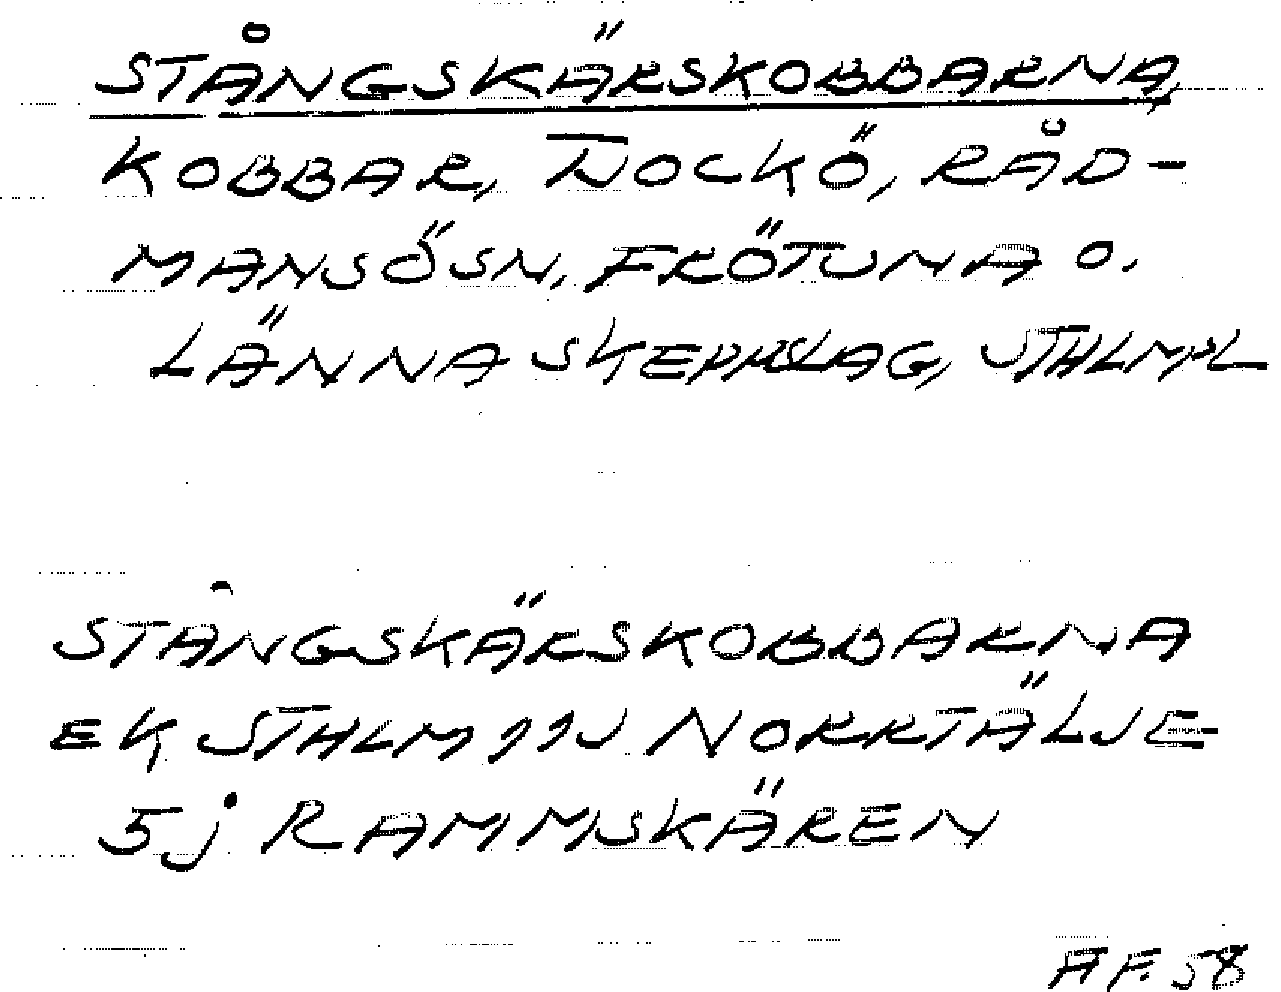 STÅNGSKÄRSKOBBARNA,
KOBBAR, NOCKÖ, RÅD-
MANSÖSN, FRÖTUNA O.
LÄNNA SKEPPSLAG, STHLMPL
STÅNGSKÄRSKOBBARNA
EK STHLM 11J NORRTÄLJE
5j RAMMSKÄREN
AF. 58